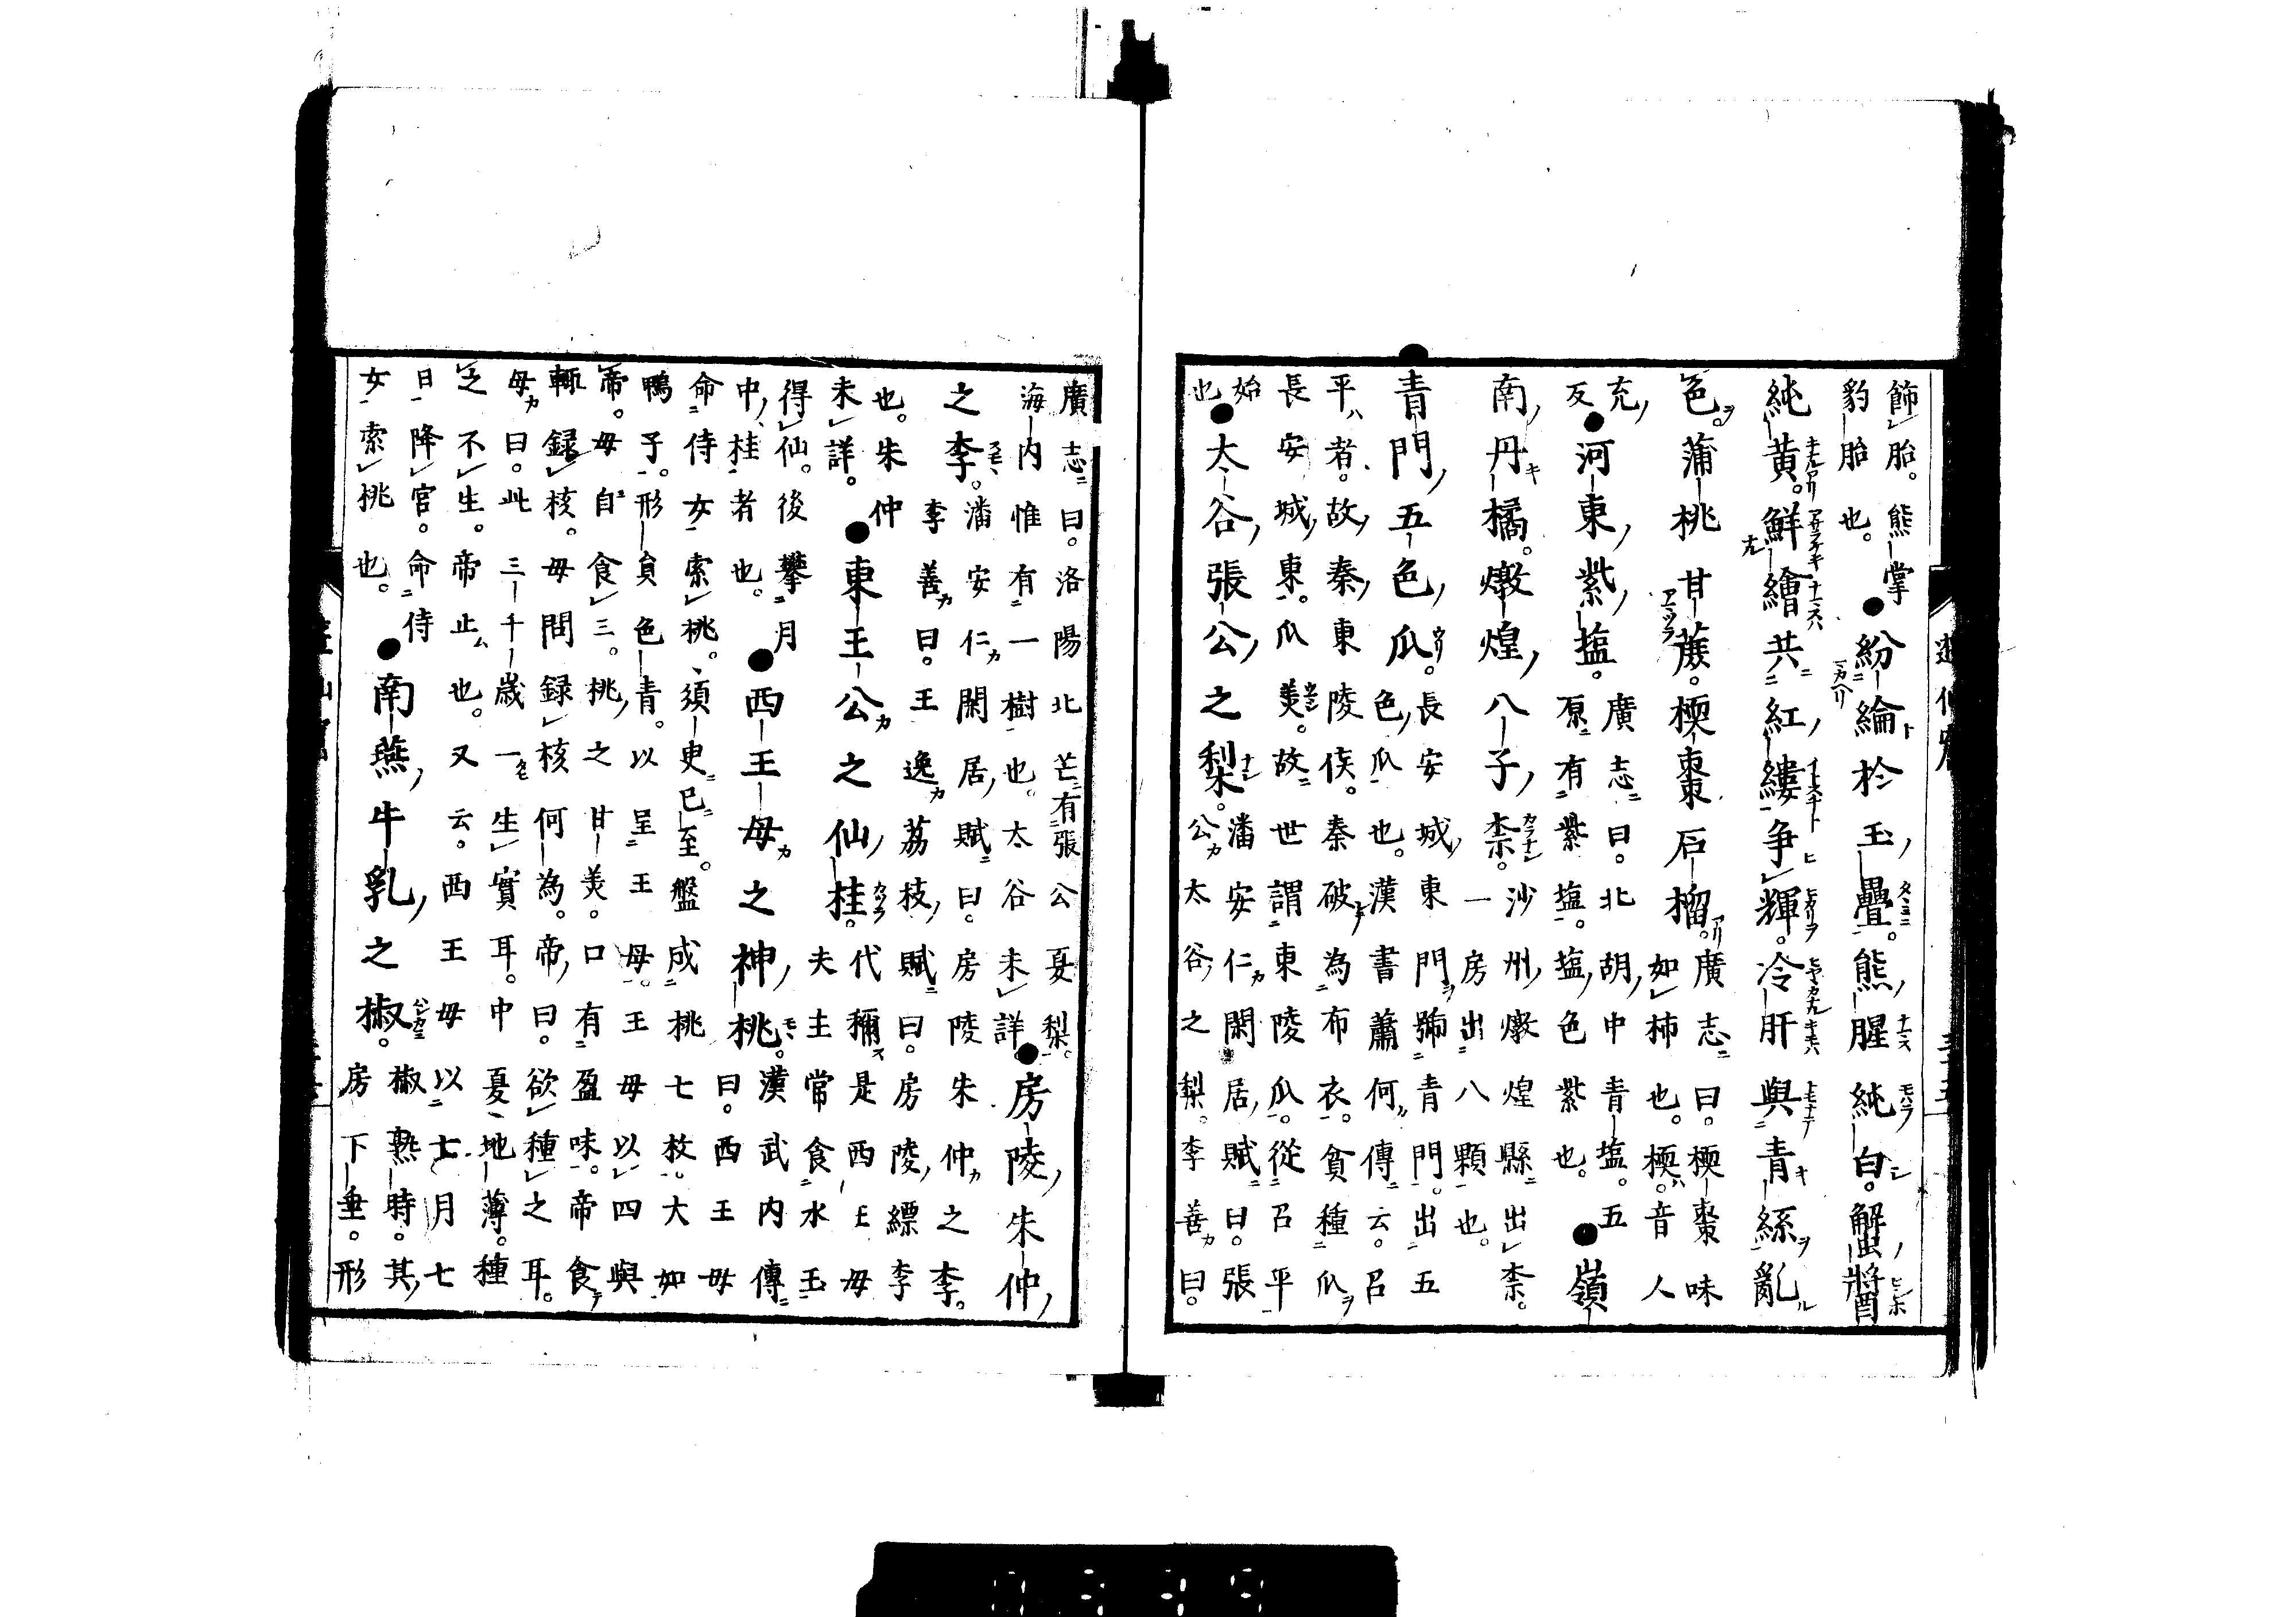 飾胎。熊掌
豹胎也。
●紛綸於玉疊。熊腥純白。蟹醬
純黃。鮮繪共紅縷争輝。冷肝與青絲亂
色。蒲桃甘蔗。楔棗石榴。
廣志曰。楔棗味
如柿也。楔。音人
充
反
●河東紫塩。
廣志曰。北胡中青塩。五
原有紫塩。塩色紫也。
●嶺
南丹橘。燉煌八子柰。
沙州燉煌縣出柰。
一房出八顆也。
青門五色瓜。
長安城東門號青門。出五
色瓜也。漢書蕭何傳云。召
平者。故秦東陵侯。秦破為布衣。貧種瓜
長安城東。瓜美。故世謂東陵瓜。從召平
始
也
●太谷張公之梨。
潘安仁閑居賦曰。張
公太谷之梨。李善曰。
廣志曰。洛陽北芒有張公夏梨。
海内惟有一樹也。太谷未詳
●房陵朱仲
之李。
潘安仁閑居賦曰。房陵朱仲之李。
李善曰。王逸荔枝賦曰。房陵縹李
也。朱仲
未詳。
●東王公之仙桂。
代彌是西王母
夫主常食水玉
得仙。後攀月
中桂者也。
●西王母之神桃。
漢武内傳
曰。西王母
命侍女索桃。須臾已至。盤成桃七枚。大如
鴨子。形貟色青。以呈王母。王母以四與
帝。母自食三。桃之甘美。口有盈味。帝食
輙録核。母問録核何為。帝曰。欲種之耳。
母曰。此三千歲一生實耳。中夏地薄。種
之不生。帝止也。又云。西王母以七月七
日降宮。命侍
女索桃也。
●南燕牛乳之椒。
椒熟時。其
房下垂。形